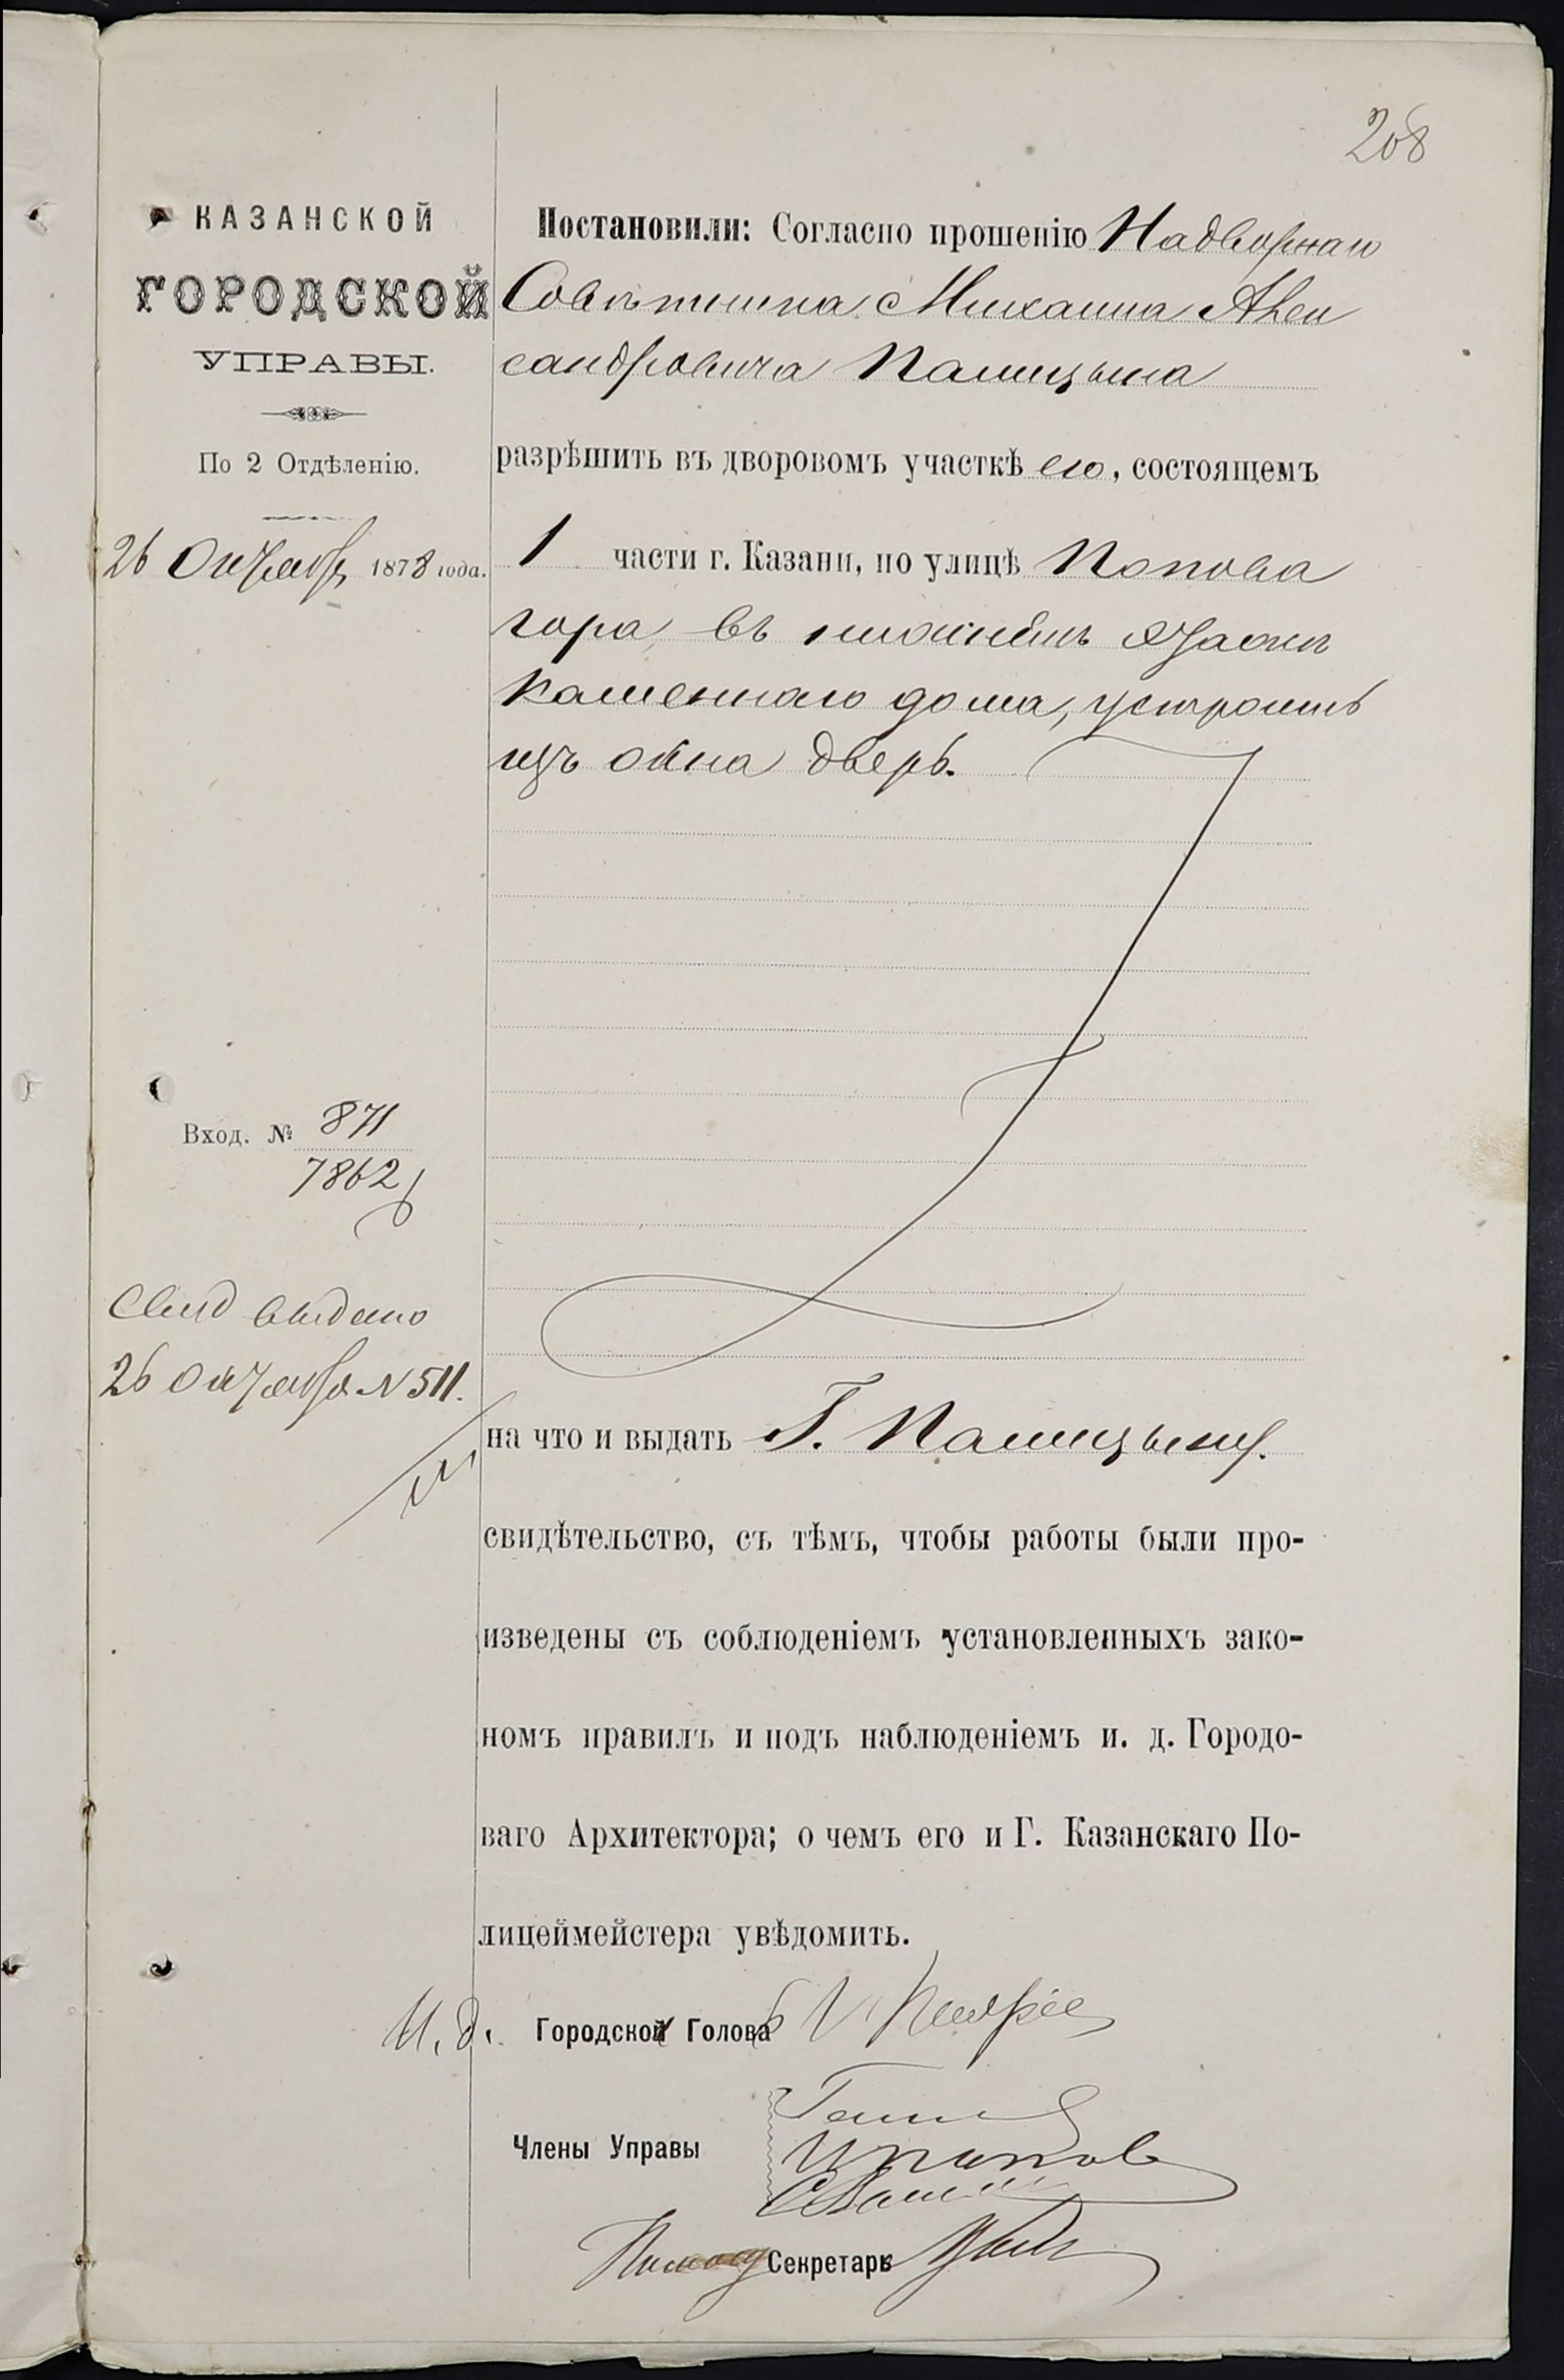 208
КАЗАНСКОЙ
ГОРОДСКОЙ
УПРАВЫ.
По 2 Отдѣленію.
26 Октября 1878 года.
Вход. № 871
7862
Свид выдано
26 Октября N 511.
Постановили: Согласно прошенію Надворнаго
Совѣтника Михаила Алек
сандровича Палицына
разрѣшить въ дворовомъ участкѣ его, состоящемъ
1 части г. Казани, по улицѣ Попова
гора, въ нижнемъ этажѣ
каменнаго дома, устроить
изъ окна дверь.
на что и выдать Г. Палицыну.
свидѣтельство, съ тѣмъ, чтобы работы были про-
изведены съ соблюденіемъ установленныхъ зако-
номъ правилъ и подъ наблюденіемъ и. д. Городо-
ваго Архитектора; о чемъ его и Г. Казанскаго По-
лицеймейстера увѣдомить.
И. д. Городской Голова
Члены Управы
Секретарь